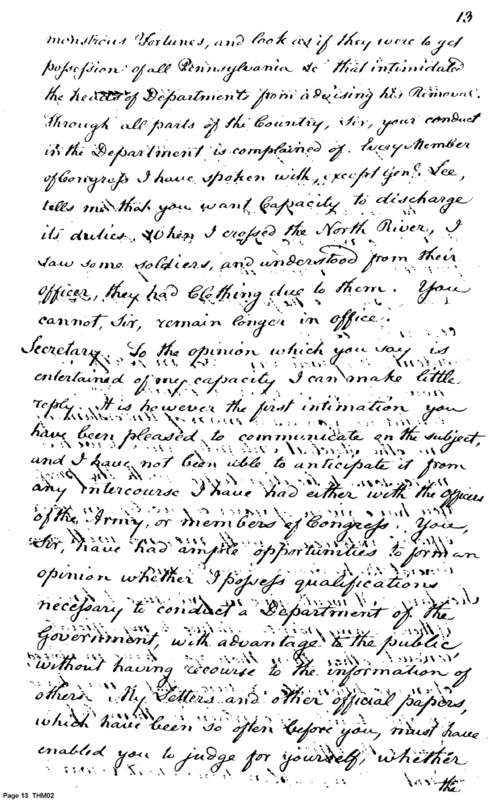 13
monstrous Fortunes, and look as if they were to get
possession of all Pennsylvania &c that intimidated
the heads of Departments from advising his Removal.
Through all parts of the Country, Sir, your conduct
in the Department is complained of. Every Member
of Congress I have spoken with, except Genl. Lee,
tells me that you want Capacity to discharge
its duties, When I crossed the North River, I
saw some soldiers, and understood from their
officer, they had Clothing due to them. You
cannot, Sir, remain longer in office.
Secretary. To the opinion which you say is
entertained of my capacity I can make little
reply. It is however the first intimation you
have been pleased to communicate on the subject,
and I have not been able to anticipate it from
any intercourse I have had either with the officers
of the Army, or members of Congress. You,
Sir, have had ample opportunities to form an
opinion whether I possess qualifications
necessary to conduct a Department of the
Government, with advantage to the public
without having recourse to the information of
others. My Letters and other official papers,
which have been so often before you, must have
enabled you to judge for yourself, whether
the
Page 13 THM02